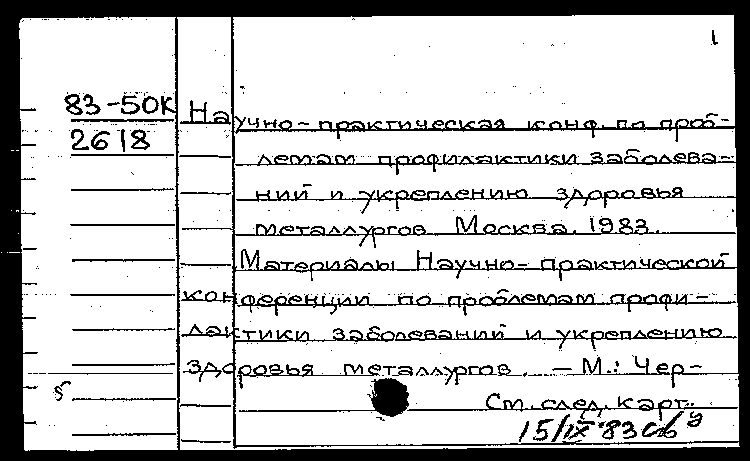 1
83-50К
2618
Научно-практическая конф. по проб-
лемам профилактики заболева-
ний и укреплению здоровья
металлургов. Москва. 1983.
Материалы Научно-практической
конференции по проблемам профи-
лактики заболеваний и укреплению
здоровья металлургов. — М.: Чер-
См. след. карт.
15/IX 83
5